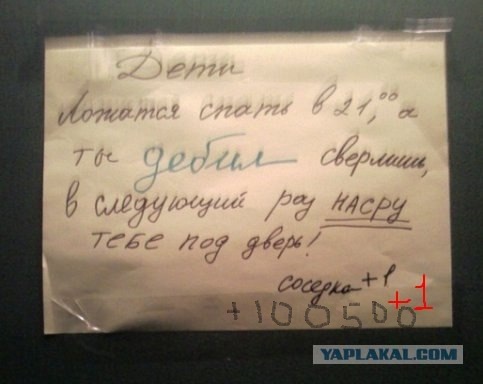 Дети
Ложатся спать в 21,00 а
ты дебил сверлишь,
в следующий раз НАСРУ
тебе под дверь!
соседка +1
+100500
+1
YAPLAKAL.COM